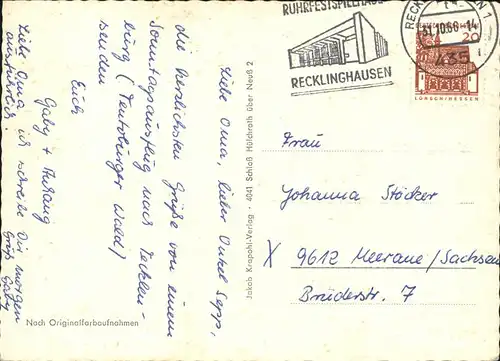 RUHRFESTSPIELHAUS
RECKLINGHAUSEN
RECKLINGHAUSEN 1
31.10.66-14
435
20
LORSCH/HESSEN
Liebe Oma, lieber Onkel Sepp,
die herzlichsten Grüße von einem
Sonntagsausflug nach Tecklen-
burg (Teutoburger Wald)
senden
Euch
Gaby + Anhang
Liebe Oma ich schreibe Dir morgen
ausführlich.
Gruß Gaby
Nach Originalfarbaufnahmen
Jakob Krapohl-Verlag · 4041 Schloß Hülchrath über Neuß 2
Frau
Johanna Stöcker
X 9612 Meerane/Sachsen
Brüderstr. 7